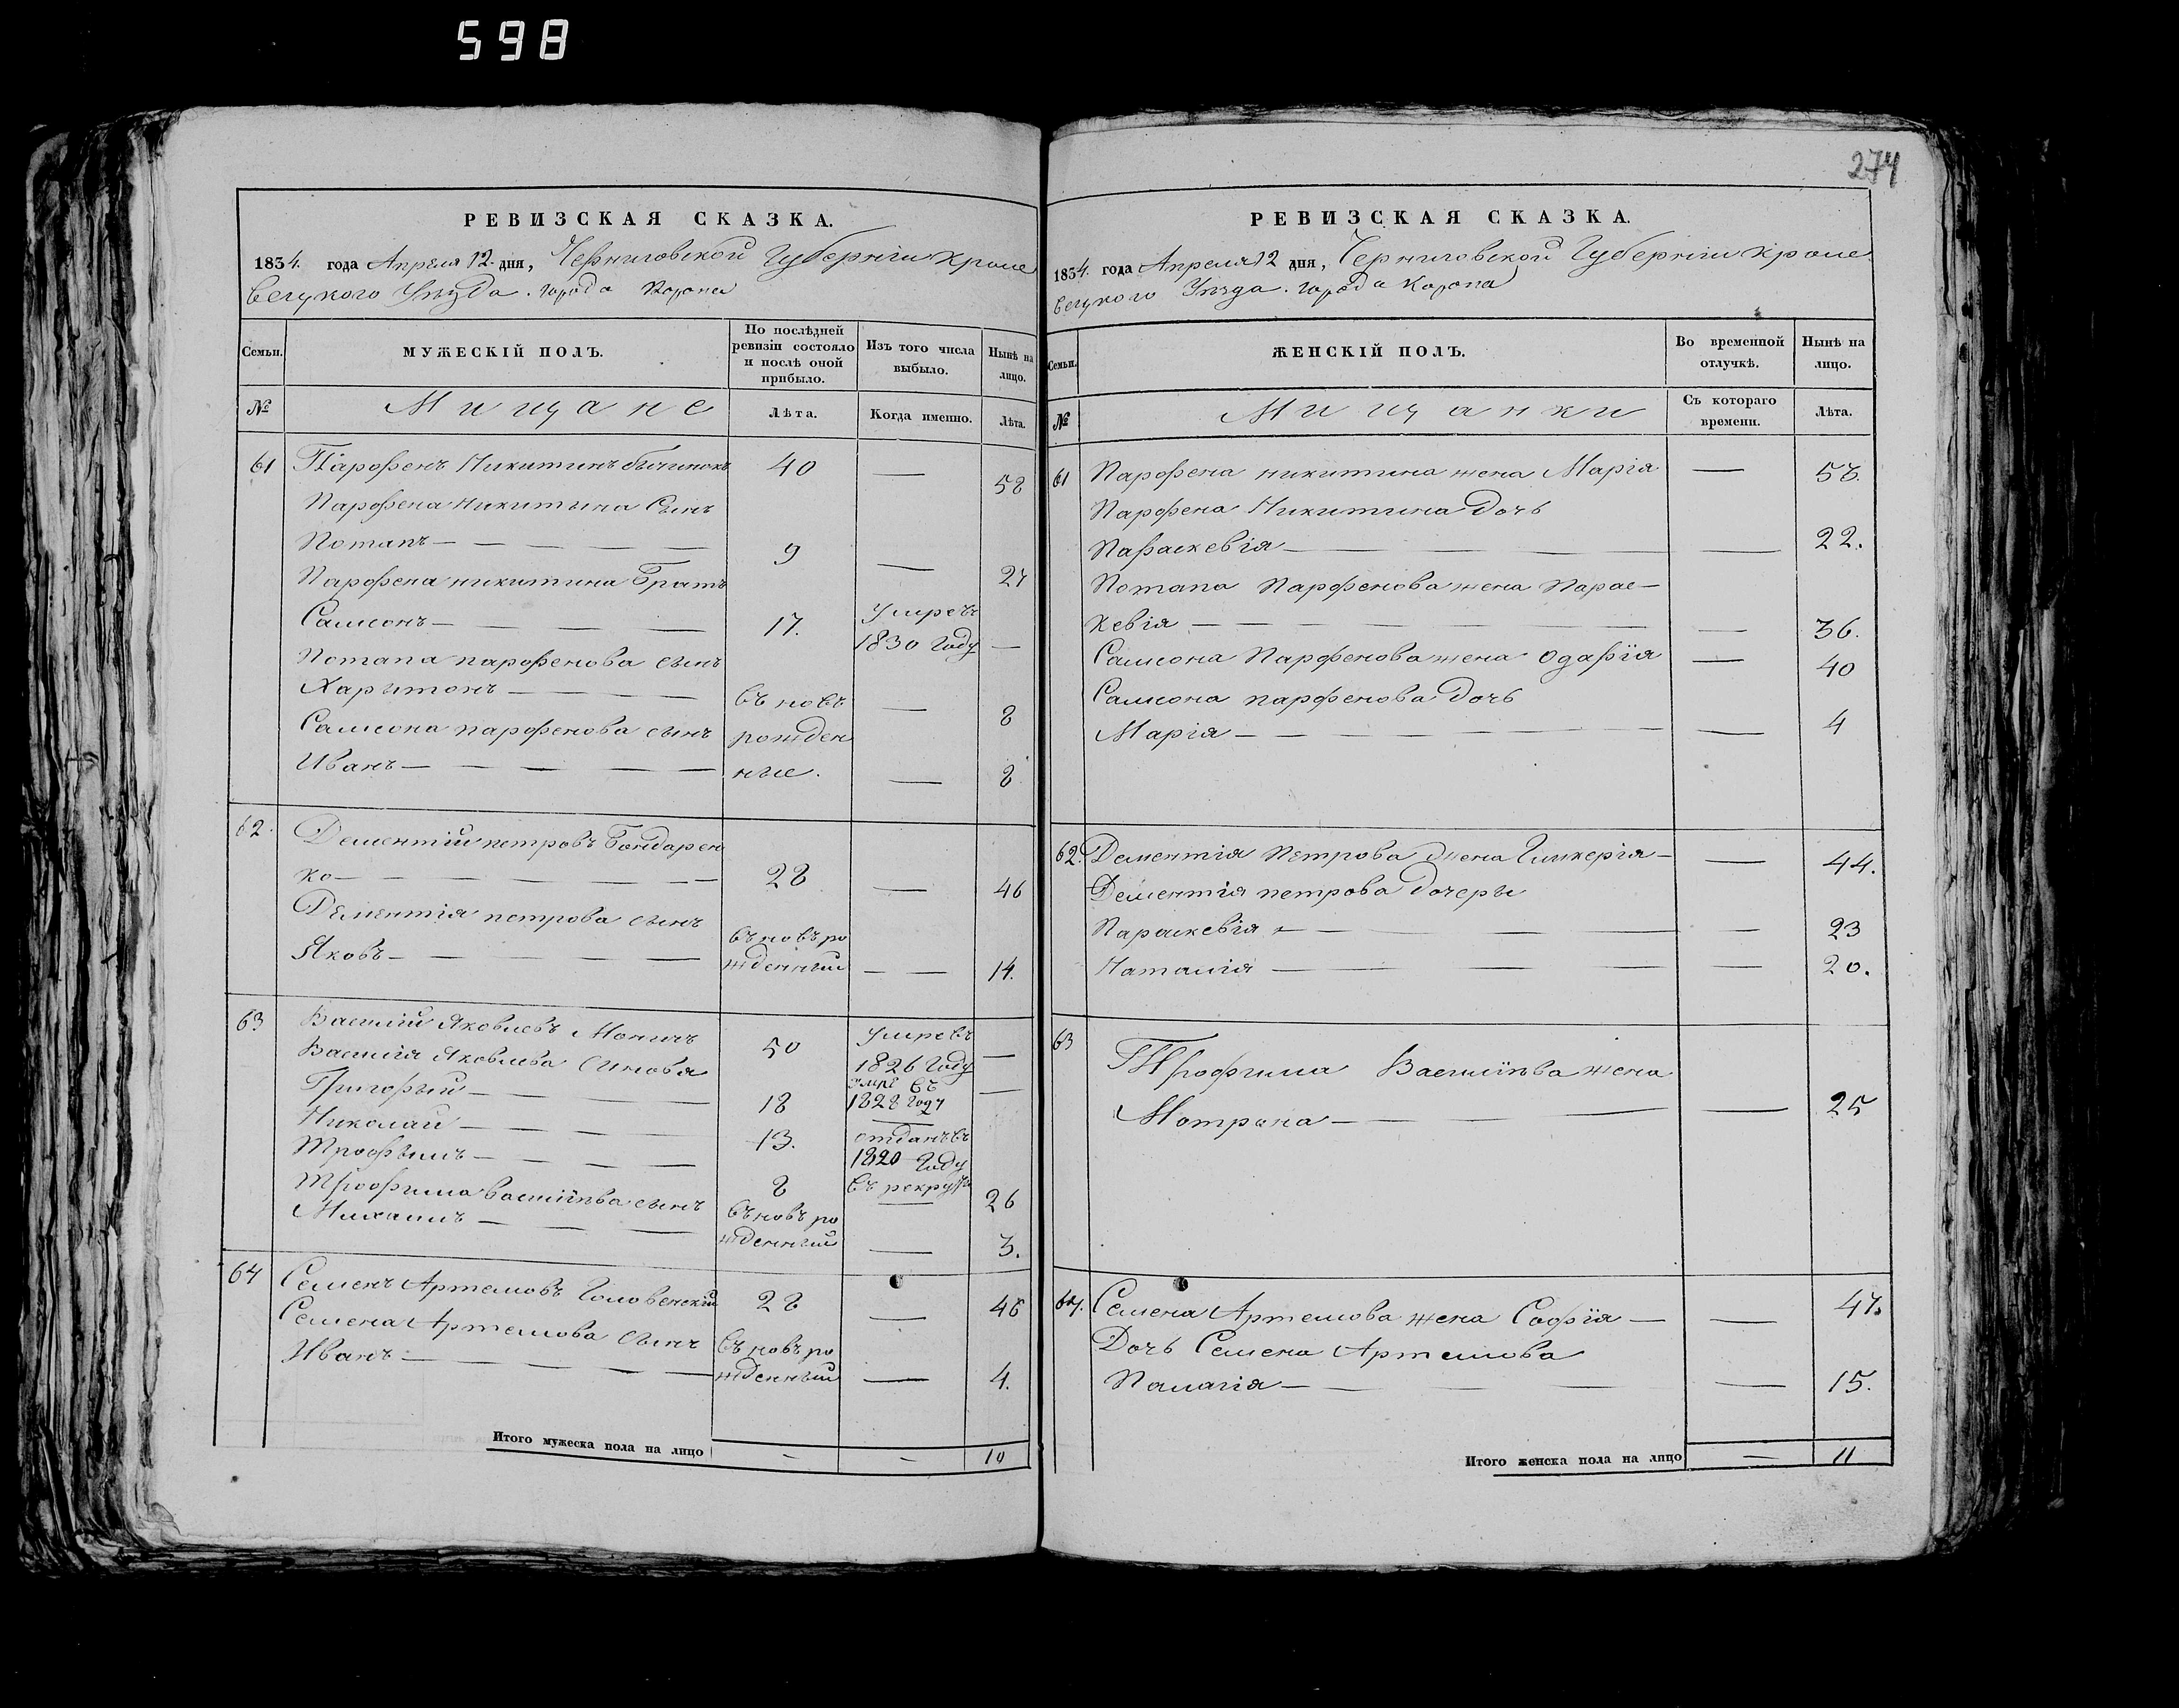 598
274
РЕВИЗСКАЯ СКАЗКА.
1834. года Апреля 12. дня, Черниговской Губерніи Кроле
вецкого Уѣзда. города Коропа
Семьи.
МУЖЕСКІЙ ПОЛЪ.
По послѣдней
ревизіи состояло
и послѣ оной
прибыло.
Изъ того числа
выбыло.
Нынѣ на
лицо.
№
Мищане
Лѣта.
Когда именно.
Лѣта.
61 Парфенъ Никитинъ 40 — 58
Парфена Никитина Сынъ
Потапъ — 9 — 27
Парфена никитина Братъ
Самсонъ — 17. Умре въ
1830 Году —
Потапа парфенова сынъ
Харитонъ — въ новъ — 8
Самсона парфенова сынъ рожден
Иванъ — ные. — 8
62. Дементій петровъ Бондарен
ко — 28 — 46
Дементія петрова сынъ въ новъ ро
Яковъ — жденный — — 14.
63 Василій Яковлевъ 50 Умре въ —
Василія Яковлева Синовя 1826 Году
Григорый — 18 умре въ —
1828 году
Николай — 13. отданъ въ
1820 Году
Трофимъ — 8 въ рекруты
— 26
Трофима василіева сынъ въ новъ ро
Михаилъ — жденный — 3.
64 Семенъ Артемовъ Головенскій 28 — 46
Семена Артемова Сынъ въ новъ ро
Иванъ — жденный — 4.
Итого мужеска пола на лицо — — 10
РЕВИЗСКАЯ СКАЗКА.
1834. года Апреля 12 дня, Черниговской Губерніи Кроле
вецкого Уѣзда. города Коропа
Семьи.
ЖЕНСКІЙ ПОЛЪ.
Во временной
отлучкѣ.
Нынѣ на
лицо.
№
Мищанки
Съ котораго
времени.
Лѣта.
61 Парфена никитина жена Марія — 58.
Парфена Никитина Дочь
Параскевія — — 22.
Потапа Парфенова жена Парас—
кевія — — 36.
Самсона Парфенова жена Одарія — 40
Самсона парфенова Дочь
Марія — — 4
62. Дементія Петрова жена Гликерія — — 44.
Дементія петрова Дочеры
Параскевія — — 23
Наталія — — 20.
63 Трофима Василіва жена
Мотрона — — 25
64. Семена Артемова жена Софія — — 47.
Дочь Семена Артемова
Палагія — — 15.
Итого женска пола на лицо — 11